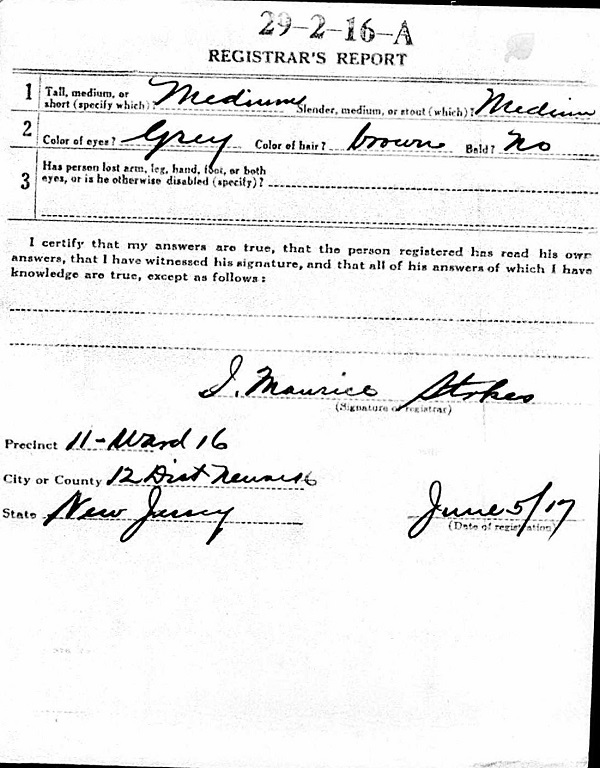 29-2-16-A
REGISTRAR'S REPORT
1 Tall, medium, or short (specify which)? Medium Slender, medium, or stout (which)? Medium
2 Color of eyes? Grey Color of hair? brown Bald? No
3 Has person lost arm, leg, hand, foot, or both
eyes, or is he otherwise disabled (specify)?
I certify that my answers are true, that the person registered has read his own
answers, that I have witnessed his signature, and that all of his answers of which I have
knowledge are true, except as follows:
I. Maurice Stokes
(Signature of registrar)
Precinct 11-Ward 16
City or County 12 Dist Newark
State New Jersey June 5/17
(Date of registration)